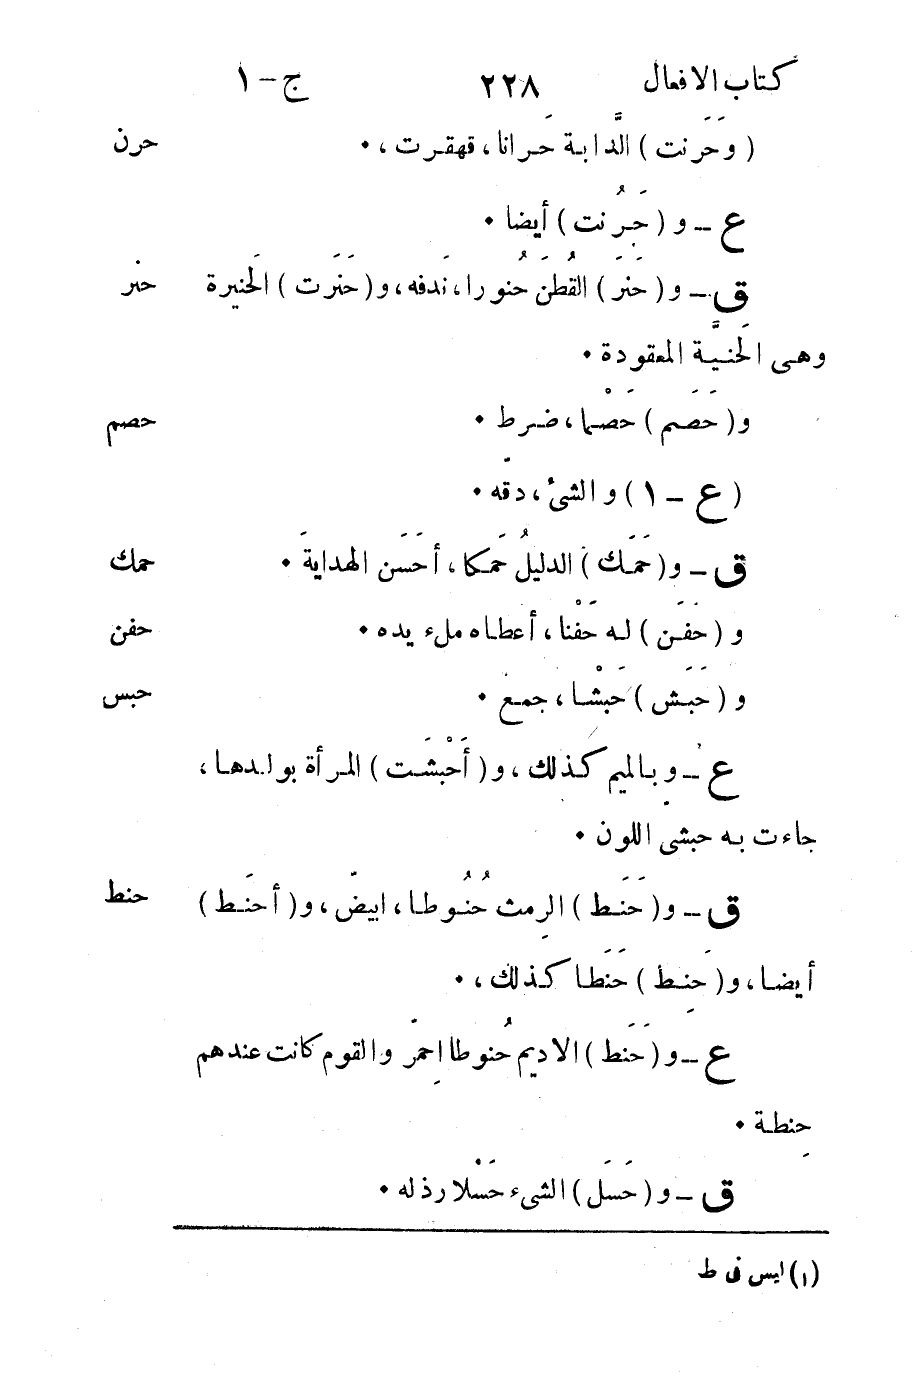 كتاب الافعال ٢٢٨ ج – ١
( وَحَرَنت ) الدَّابة حَرانا ، قهقرت ، • حرن
ع – و ( حَرُنت ) أيضا •
ق – و ( حَنَرَ ) القُطنَ حُنُورا ، نَدفه ، و ( حَنَرَت ) الحَنيرة حنر
وهى الحَنيَّة المعقودة •
و ( حَصَم ) حَصْما ، ضرط • حصم
( ع – ١ ) و الشئ ، دقّه •
ق – و ( حَمَك ) الدليلُ حَمَكا ، أحَسَن الهدايةَ • حمك
و ( حَفَن ) له حَفْنا ، أعطاه ملء يده • حفن
و ( حَبَش ) حَبْشا ، جمع • حبس
ع – و بالميم كذلك ، و ( أَحْبشَت ) المرأة بولدها ،
جاءت به حبشى اللون •
ق – و ( حَنَط ) الرِمث حُنُوطا ، ابيضّ ، و ( أحنَط ) حنط
أيضا ، و ( حَنِط ) حَنَطا كذلك ، •
ع – و ( حَنَط ) الاديم حُنوطا اِحمرّ والقوم كانت عندهم
حِنطة •
ق – و ( حَسَل ) الشىء حَسْلا رذله •
(١) ايس فى ط